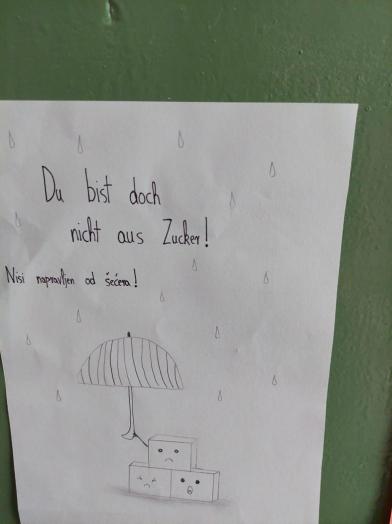 Du bist doch
nicht aus Zucker!
Nisi napravljen od šećera!